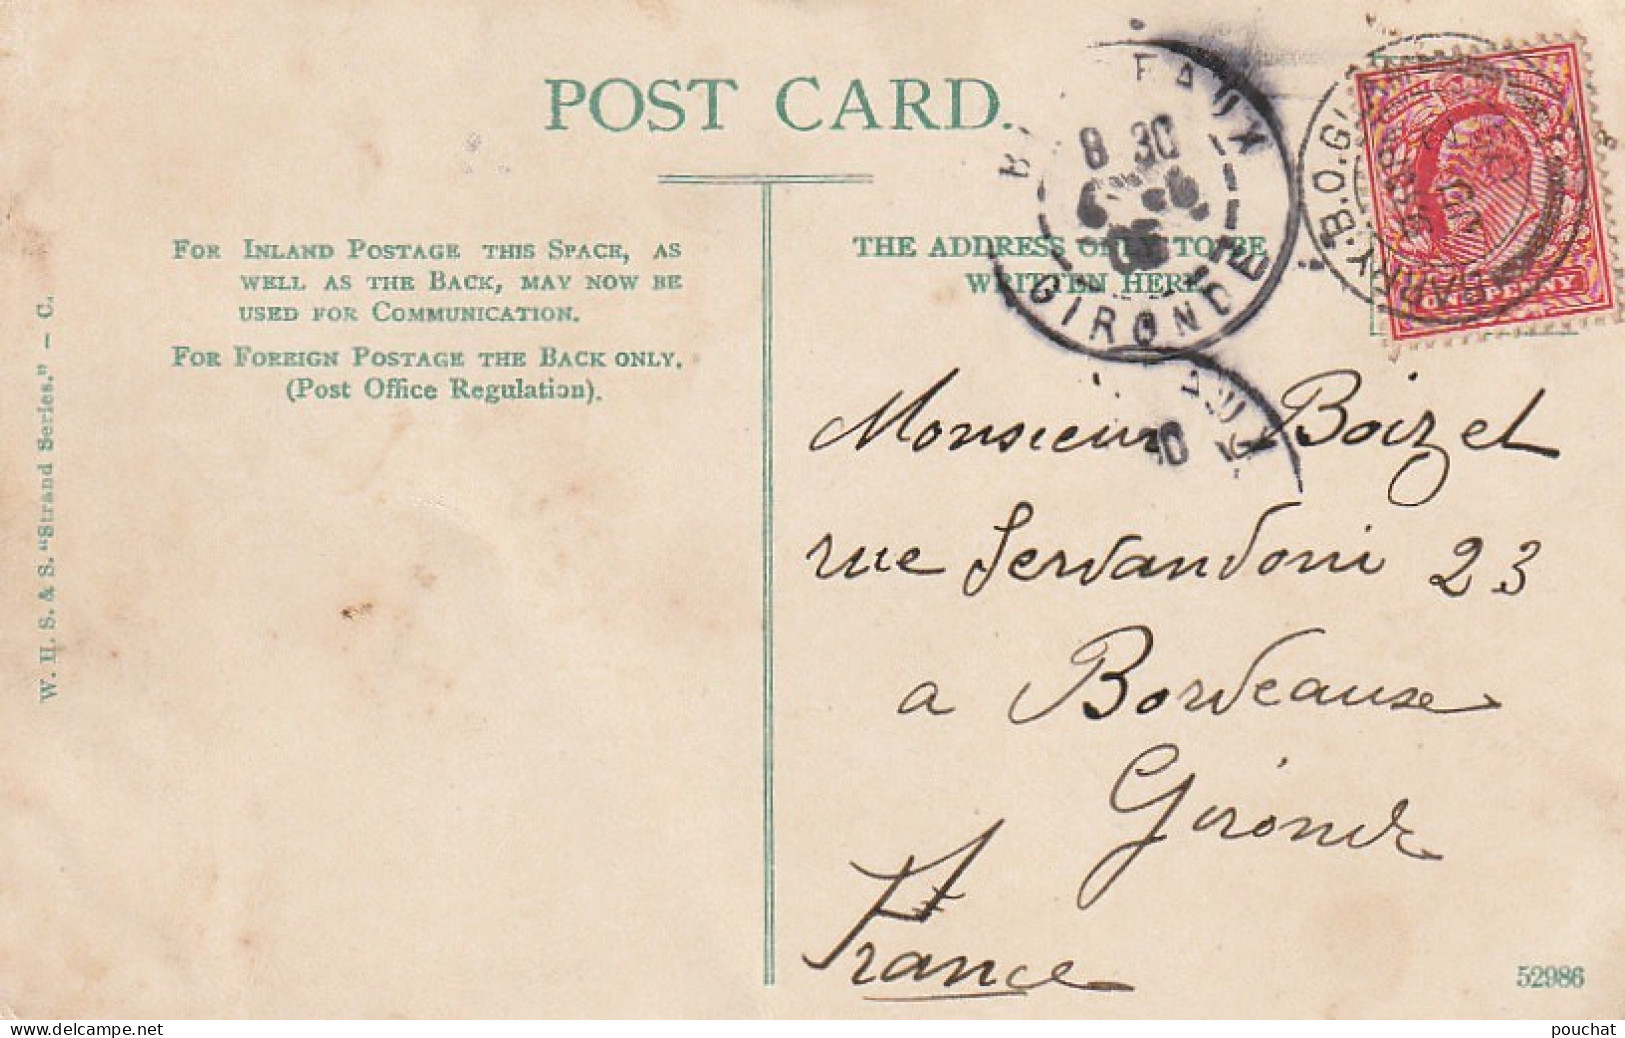 POST CARD.
FOR INLAND POSTAGE THIS SPACE, AS
WELL AS THE BACK, MAY NOW BE
USED FOR COMMUNICATION.
FOR FOREIGN POSTAGE THE BACK ONLY.
(Post Office Regulation).
W. H. S. & S. "Strand Series." — C.
THE ADDRESS ONLY TO BE
WRITTEN HERE
8 30
GIRONDE
BARRY
Monsieur Boizel
rue Servandoni 23
a Bordeaux
Gironde
France
52986
pouchat